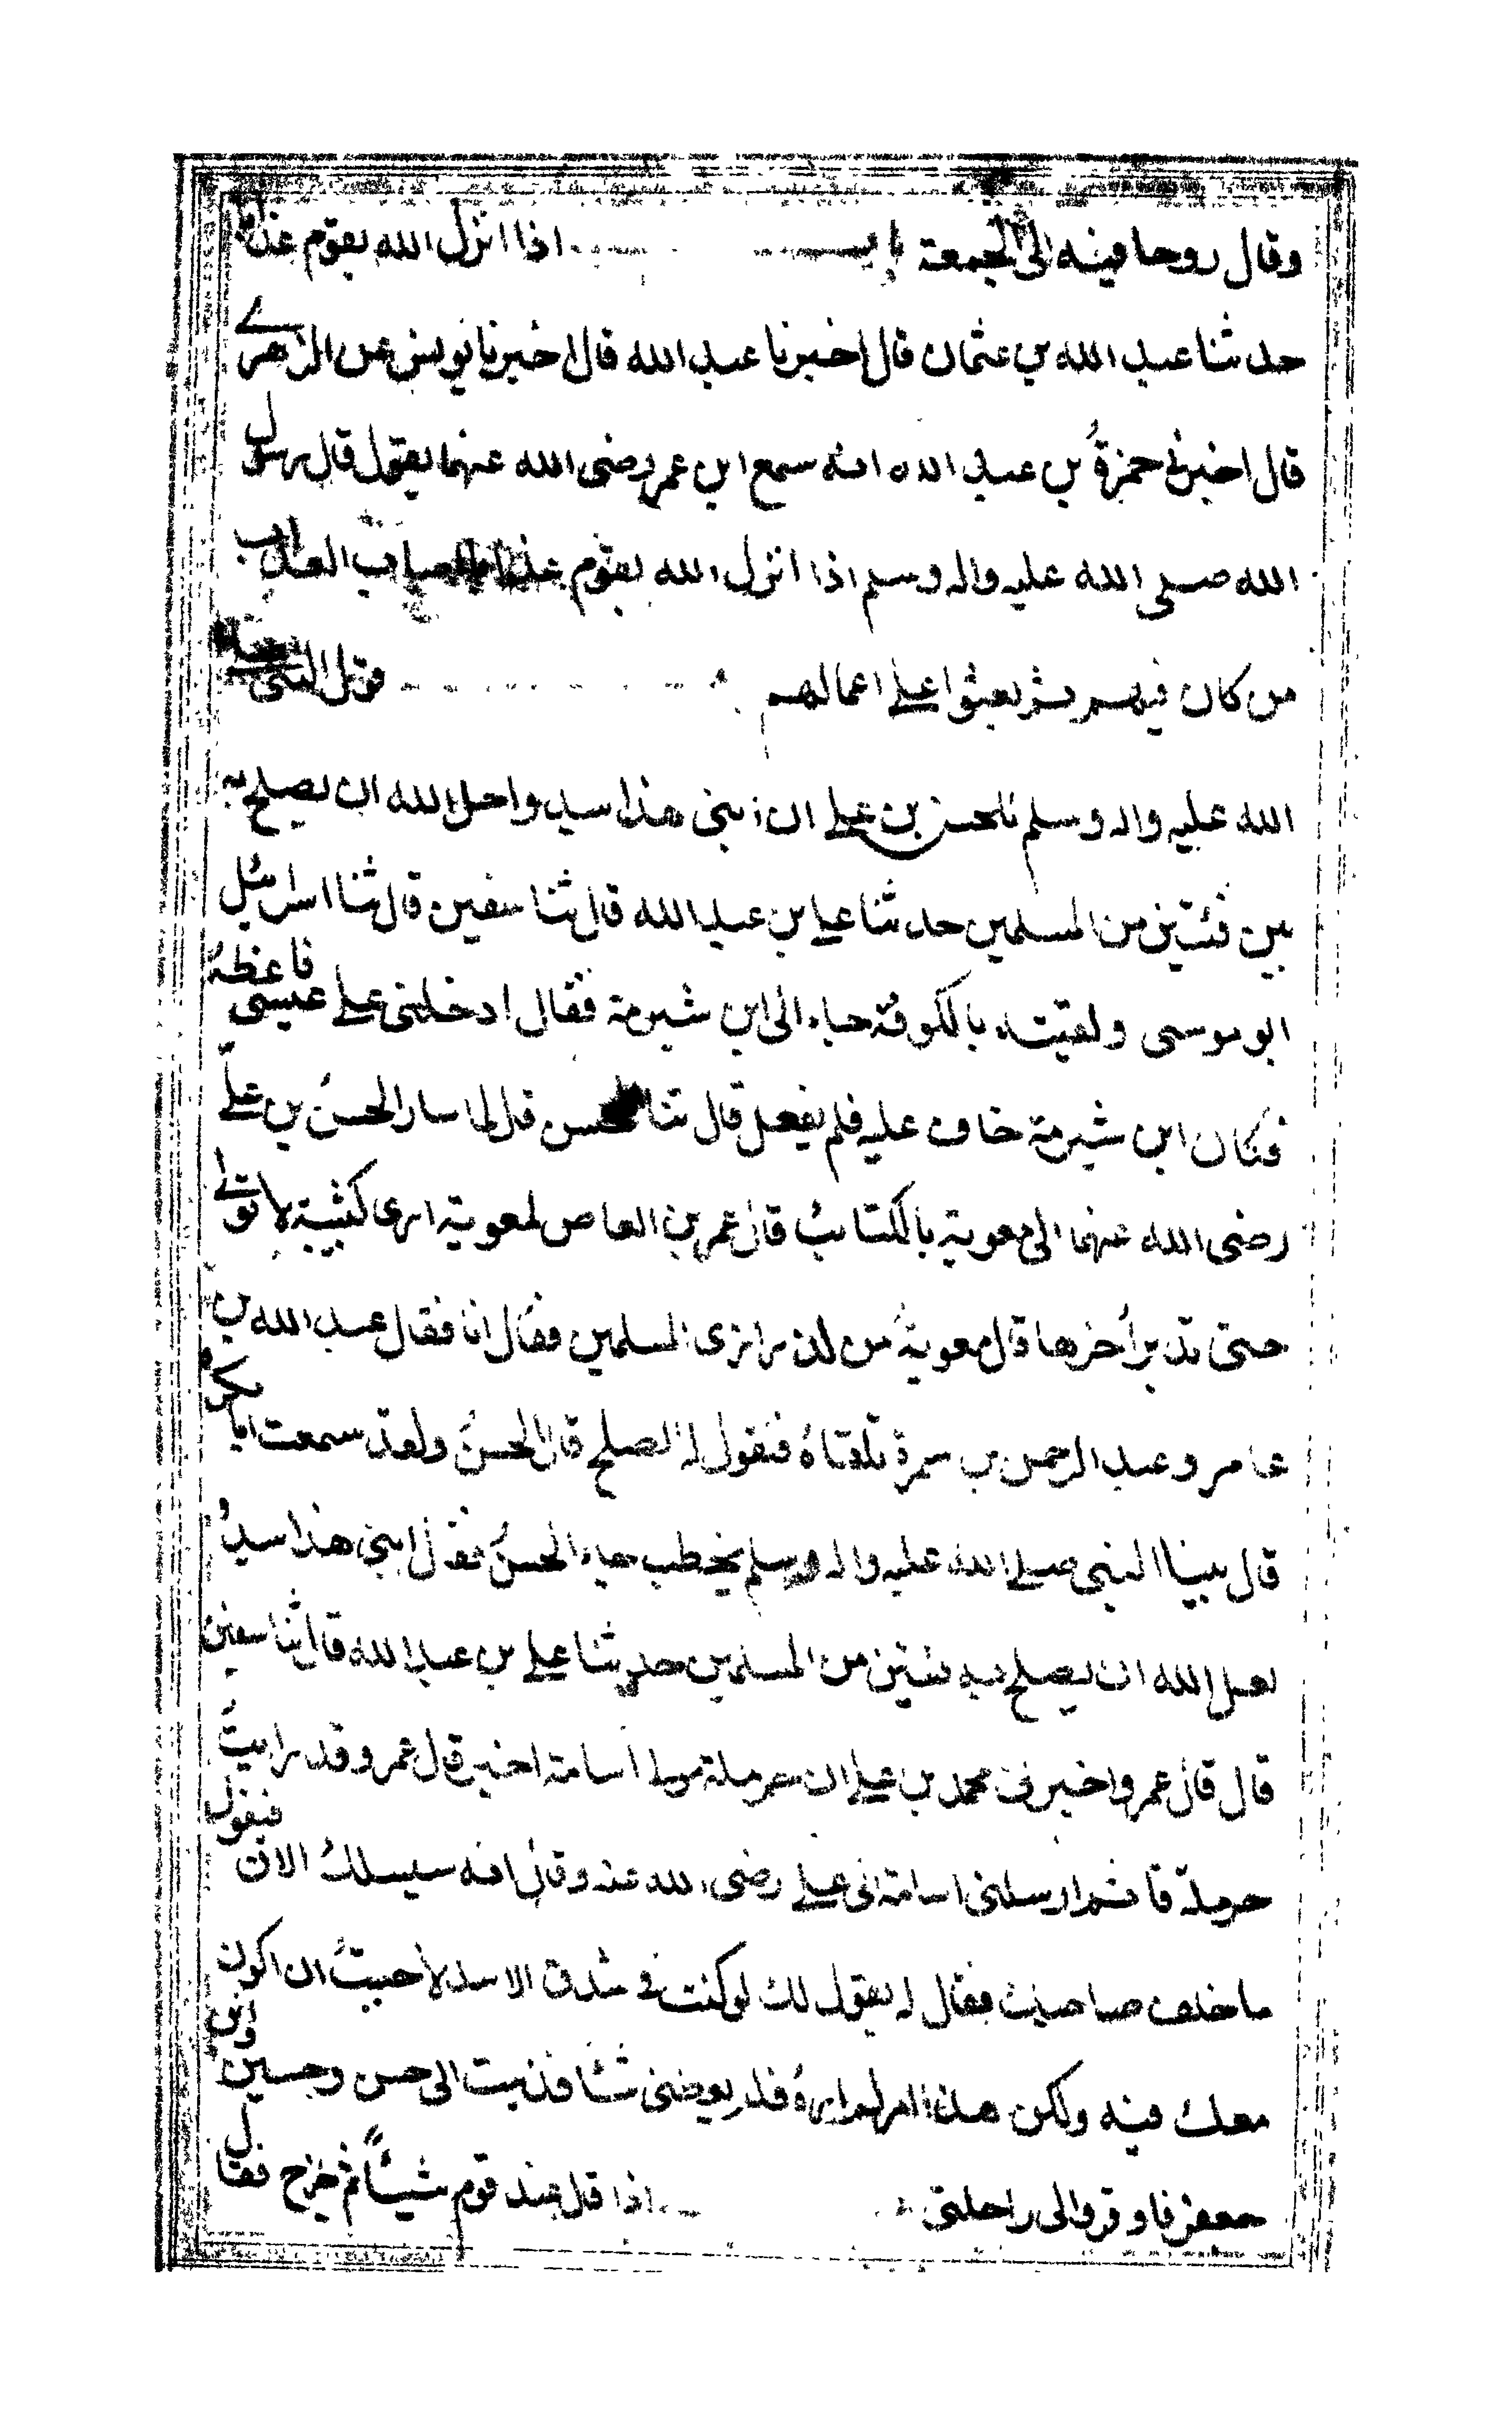 وقال روحا فيه الى الجمعة باب اذا انزل الله بقوم عذابا
حدثنا عبد الله بن عثمان قال اخبرنا عبد الله قال اخبرنا يونس عن الزهرى
قال اخبرنى حمزةُ بن عبد الله انه سمع ابن عمر رضى الله عنهما يقول قال رسول
الله صلى الله عليه واله وسلم اذا انزل الله بقوم عذابا اصاب العذاب
من كان فيهم ثم بعثوا على اعمالهم قول النبى صلى
الله عليه واله وسلم للحسن بن على ان ابنى هذا سيد ولعل الله ان يصلح به
بين فئتين من المسلمين حدثنا على بن عبد الله قال ثنا سفين قال ثنا اسرائيل
ابو موسى ولقيته بالكوفة جاء الى ابن شبرمة فقال ادخلنى على عيسى فاعظهُ
فكان ابن شبرمة خاف عليه فلم يفعل قال ثنا الحسن قال لما سار الحسنُ بن على
رضى الله عنهما الى معوية بالكتائب قال عمر بن العاص لمعوية ارى كتيبة لا تولى
حتى تدبر أخرها قال معوية من لذرارى المسلمين فقال انا فقال عبد الله بن
عامر وعبد الرحمن بن سمرة تلقاهُ فنقول له الصلح قال الحسنُ ولقد سمعت ابا بكرة
قال بينا النبى صلى الله عليه واله وسلم يخطب جاء الحسنُ فقال ابنى هذا سيدُ
لعل الله ان يصلح به فئتين من المسلمين حدثنا على بن عبد الله قال ثنا سفين
قال قال عمرو اخبرنى محمد بن على ان حرملة مولى اسامة اخبره قال عمرو قد رايتُ
حرملة قال ارسلنى اسامة الى على رضى الله عنه وقال انه سيسلك الان فيقول
ما خلف صاحبك فقال له يقول لك لو كنت فى شدق الاسد لأحببتُ ان اكون
معك فيه ولكن هذا امر لم ارهُ فلم يعطنى شيئا فذهبت الى حسن وحسين وابن
جعفر فاوقروا لى راحلتى اذا قال عند قوم شيئاً ثم خرج فقال